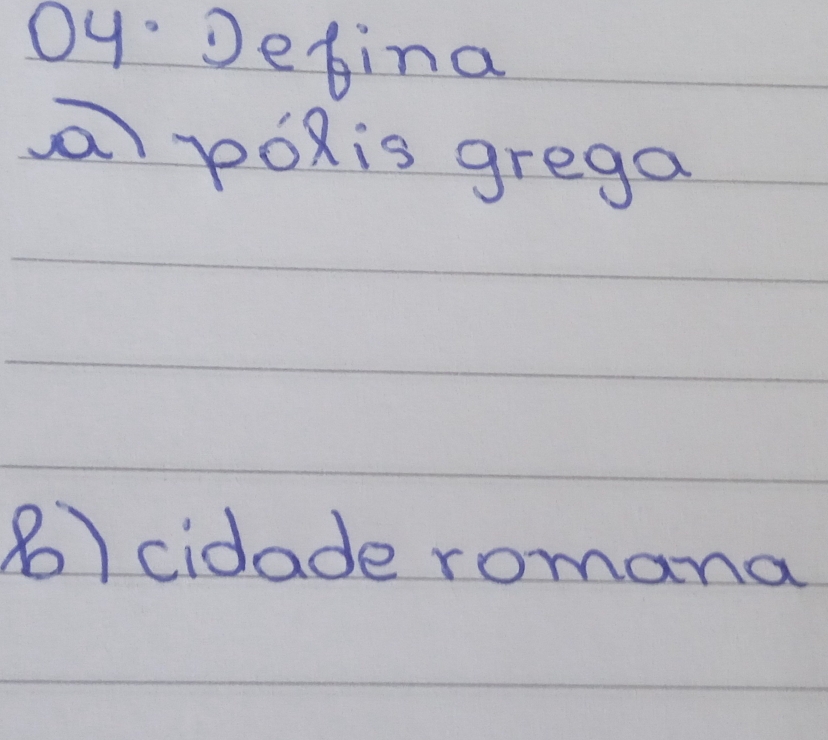 04. Defina
a) pólis grega
b) cidade romana